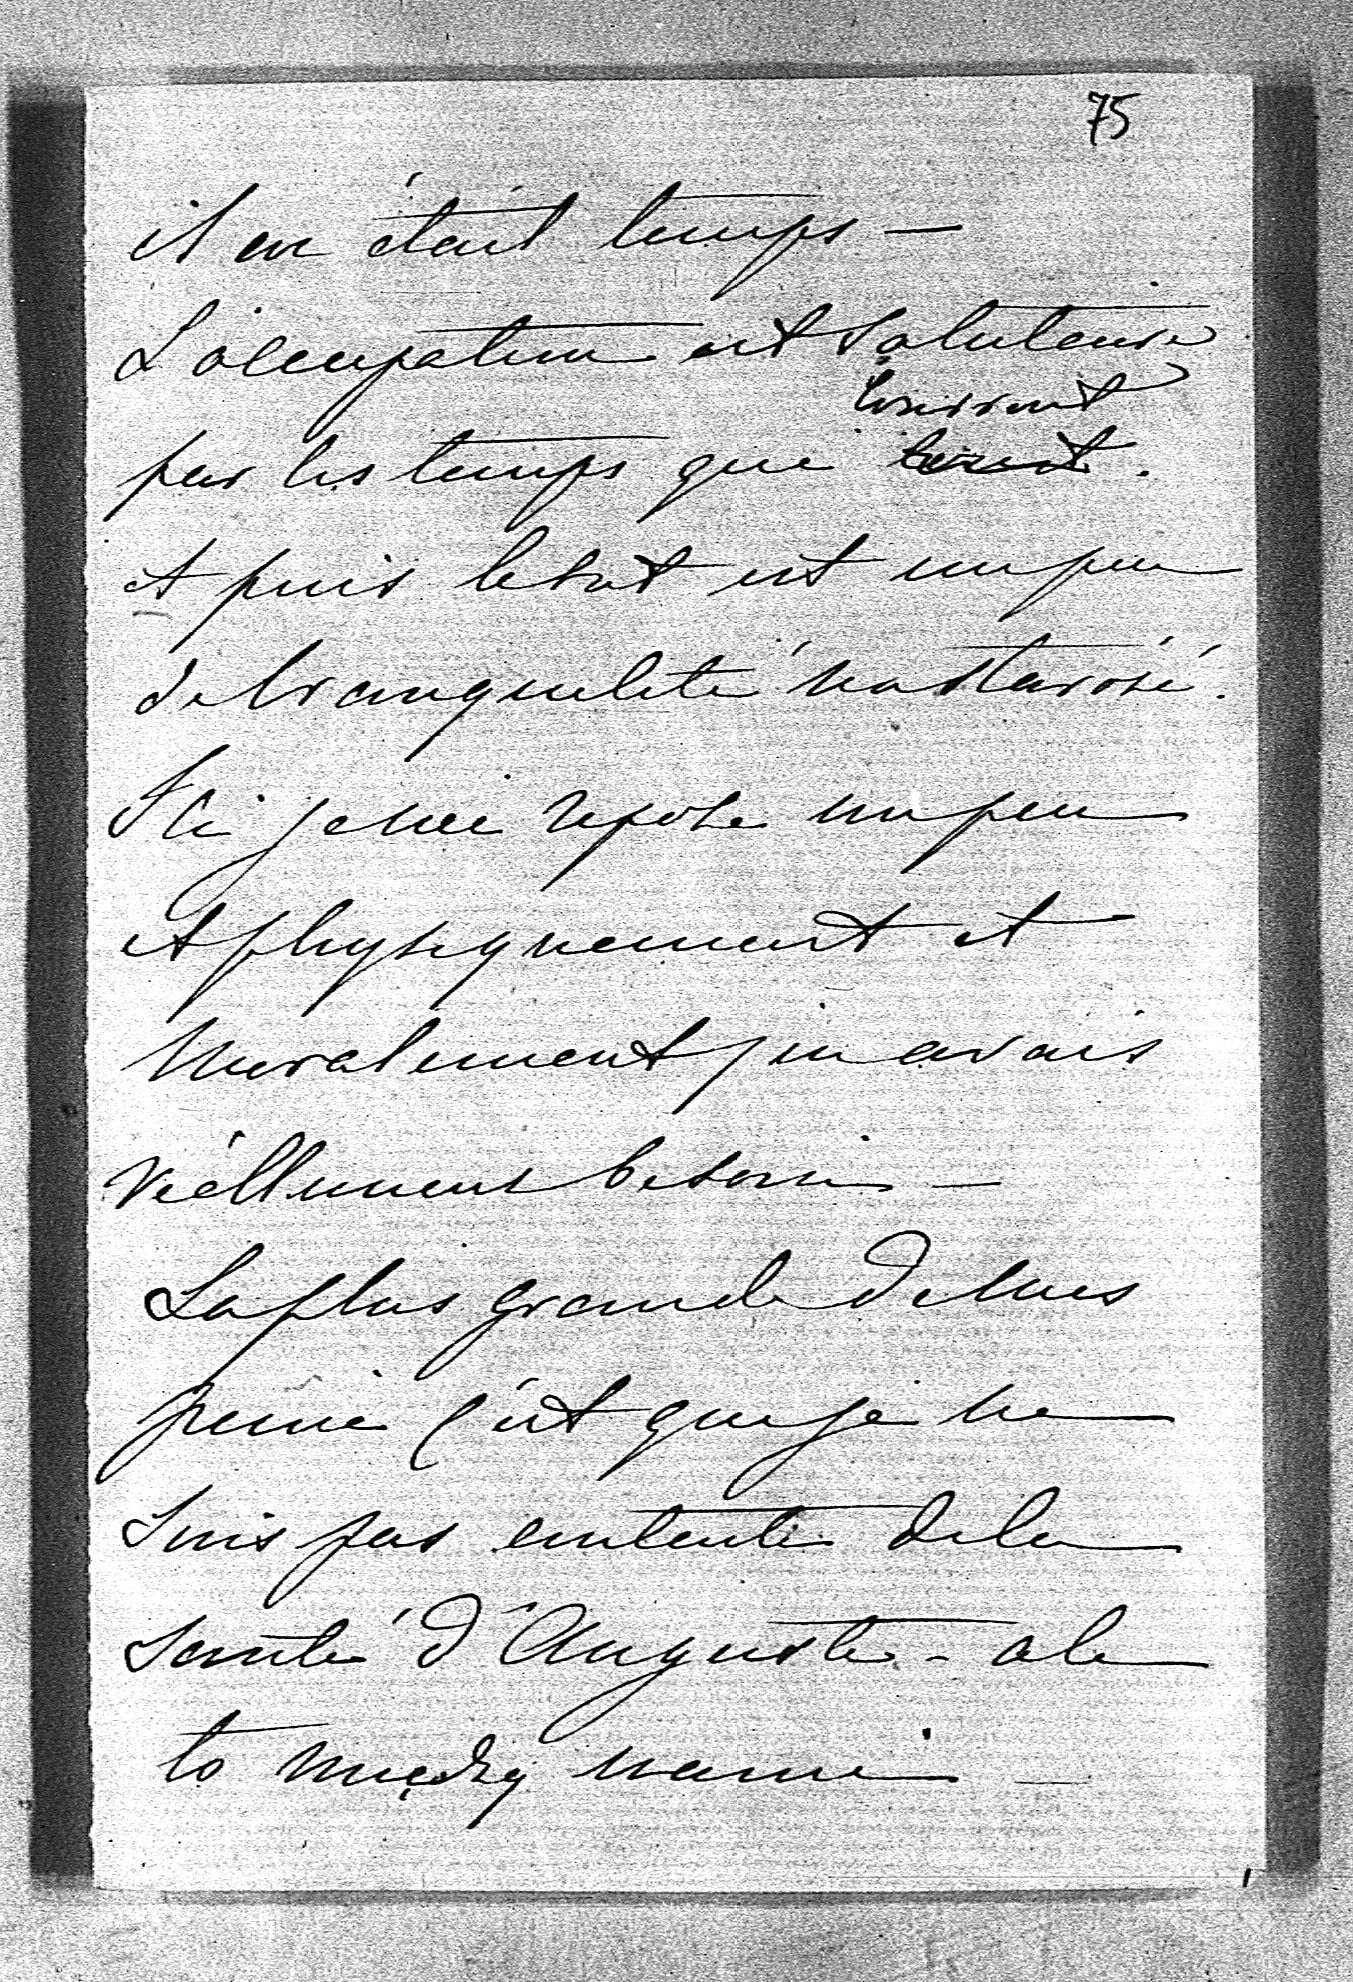 75
il en était temps —
L'occupation est salutaire
courrent
par les temps que
et puis le but est un peu
de tranquilité na starość.
Ici je me repose un peu
et physiquement et
moralement j'en avais
réellement besoin —
La plus grande de mes
peine c'est que je ne
suis pas contente de la
santé d'Auguste - ale
to między nami —